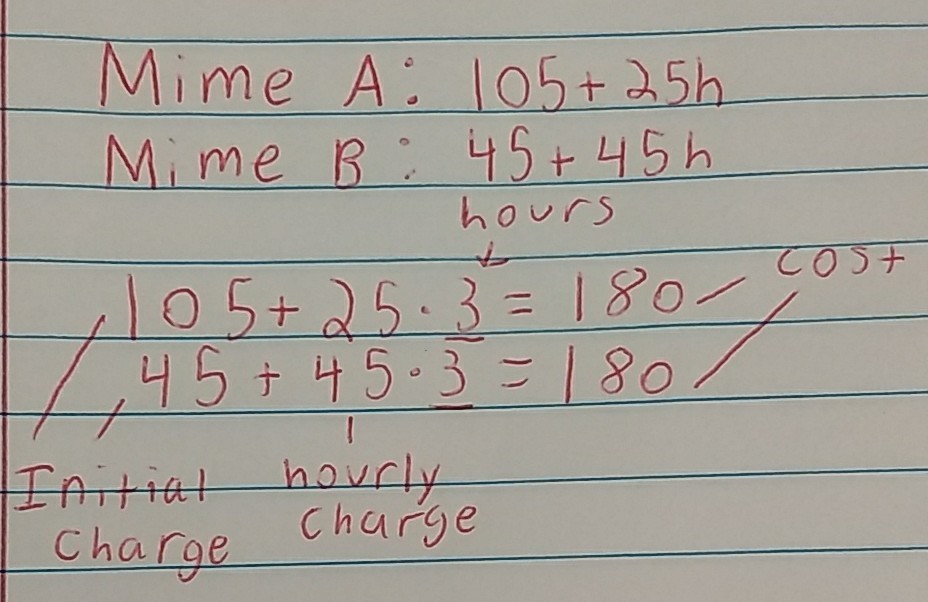 Mime A: 105+25h
Mime B: 45+45h
hours
cost
105+25·3=180
45+45·3=180
Initial hourly
Charge Charge